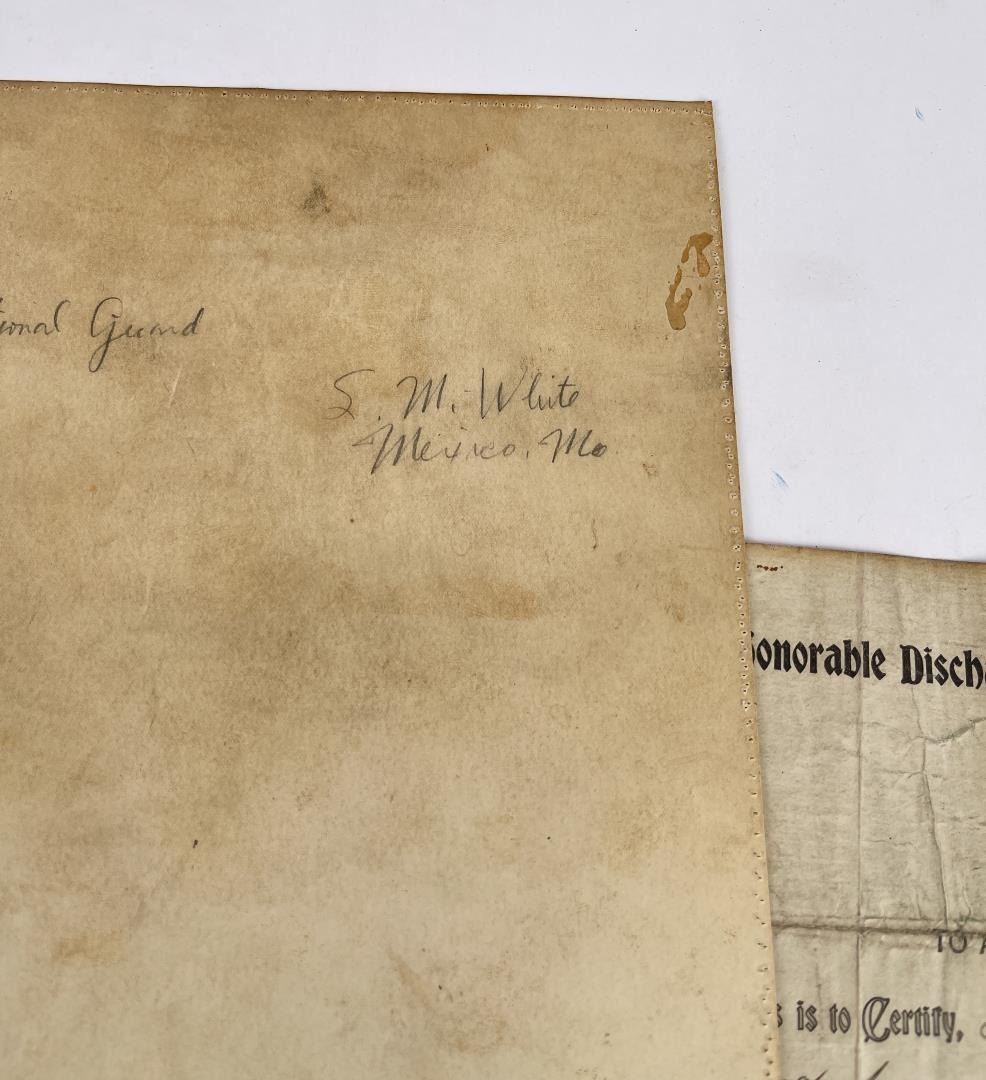 tional Guard
S. M. White
Mexico, Mo
Honorable Disch
TO A
s is to Certify,